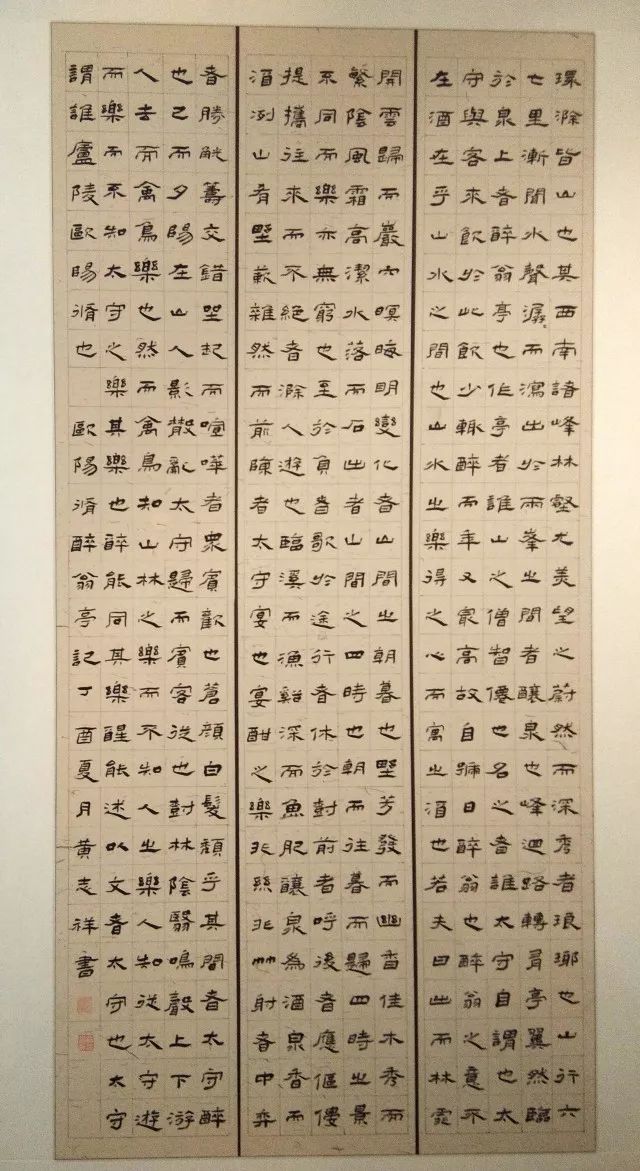 環滁皆山也其西南諸峰林壑尤美望之蔚然而深秀者琅琊也山行六
七里漸聞水聲潺々而瀉出於兩峯之間者釀泉也峰迴路轉有亭翼然臨
於泉上者醉翁亭也作亭者誰山之僧智僊也名之者誰太守自謂也太
守與客來飲於此飲少輒醉而年又最高故自號曰醉翁也醉翁之意不
在酒在乎山水之間也山水之樂得之心而寓之酒也若夫日出而林霏
開雲歸而巖穴暝晦明變化者山間之朝暮也野芳發而幽香佳木秀而
繁陰風霜高潔水落而石出者山間之四時也朝而往暮而歸四時之景
不同而樂亦無窮也至於負者歌於途行者休於樹前者呼後者應傴僂
提攜往來而不絕者滁人遊也臨溪而漁谿深而魚肥釀泉為酒泉香而
酒冽山肴野蔌雜然而前陳者太守宴也宴酣之樂非絲非竹射者中弈
者勝觥籌交錯坐起而喧嘩者眾賓歡也蒼顏白髮頹乎其間者太守醉
也已而夕陽在山人影散亂太守歸而賓客從也樹林陰翳鳴聲上下游
人去而禽鳥樂也然而禽鳥知山林之樂而不知人之樂人知從太守遊
而樂而不知太守之樂其樂也醉能同其樂醒能述以文者太守也太守
謂誰廬陵歐陽脩也 歐陽脩醉翁亭記丁酉夏月黃志祥書